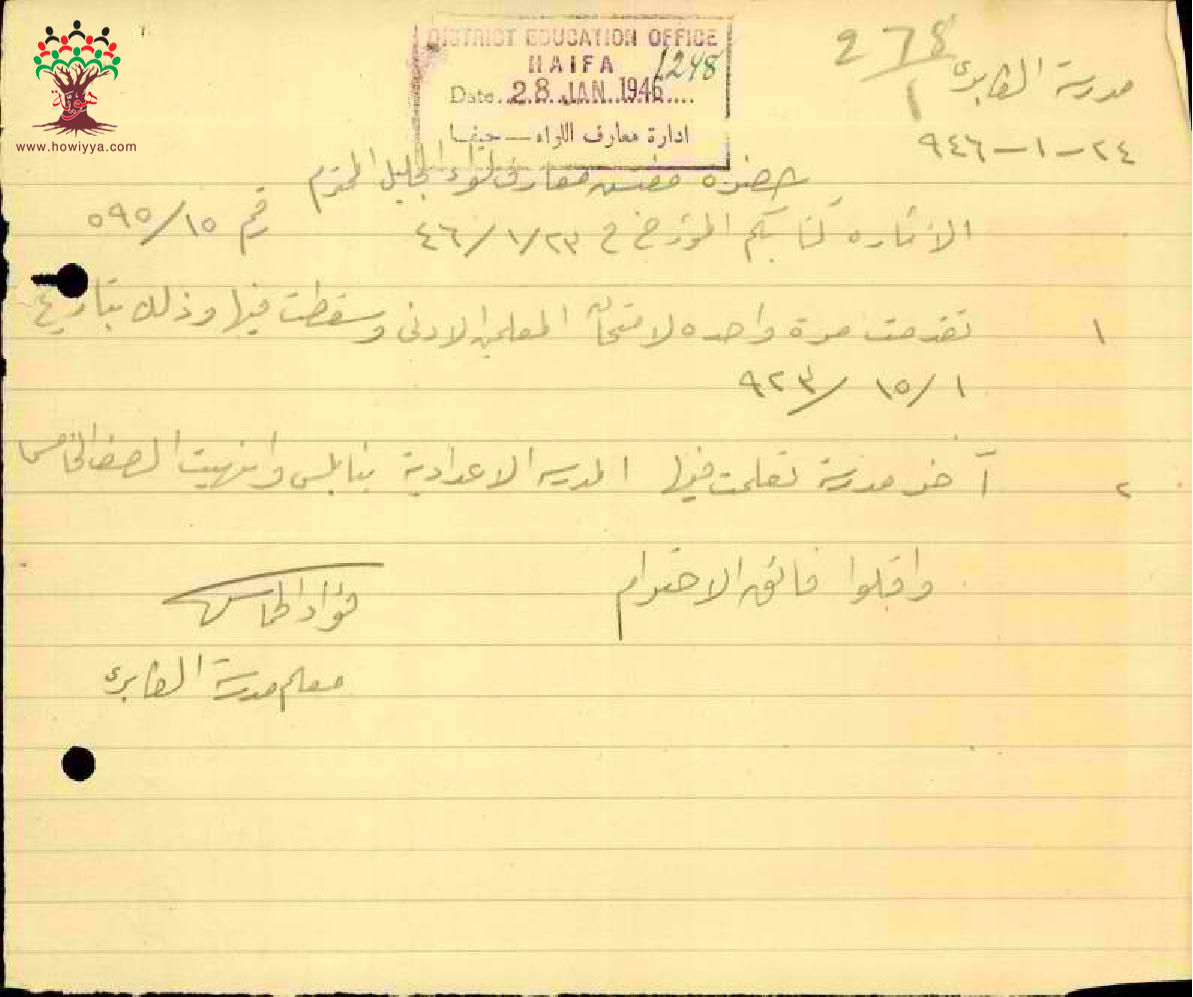 هوية
www.howiyya.com
DISTRICT EDUCATION OFFICE
HAIFA
1248
Date..28 JAN 1946....
ادارة معارف اللواء — حيفا
278
1
مدرسة الطابرك
٢٤-١-٩٤٦
حضرة مفتش معارف لواء الجليل المحترم
الاشاره كتابكم المؤرخ في ٤٦/١/٢٣ رقم ٥٩٥/١٥
١ تقدمت مرة واحده لامتحان المعلمين الادنى وسقطت فيها وذلك بتاريخ
٩٢٣/١٥/١
٢ آخر مدرسة تعلمت فيها المدرسه الاعدادية بنابلس وانهيت الصف الخامس
واقبلوا فائق الاحترام
فؤاد
معلم مدرسة الطابرك